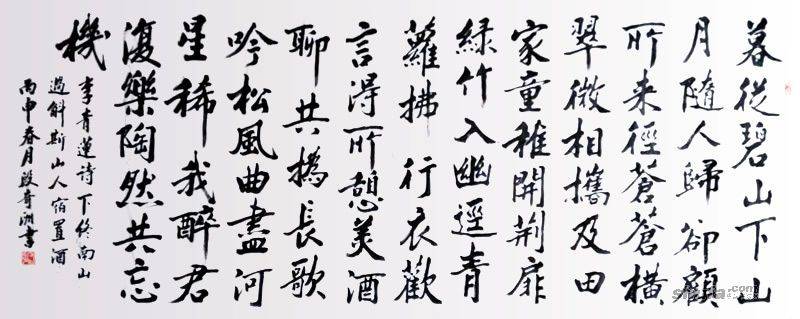 暮從碧山下山
月隨人歸卻顧
所来徑蒼蒼橫
翠微相攜及田
家童稚開荆扉
緑竹入幽逕青
蘿拂行衣歡
言得所憩美酒
聊共撝長歌
吟松風曲盡河
星稀我醉君
復樂陶然共忘
機
李青蓮詩下終南山
過斛斯山人宿置酒
丙申春月段奇書